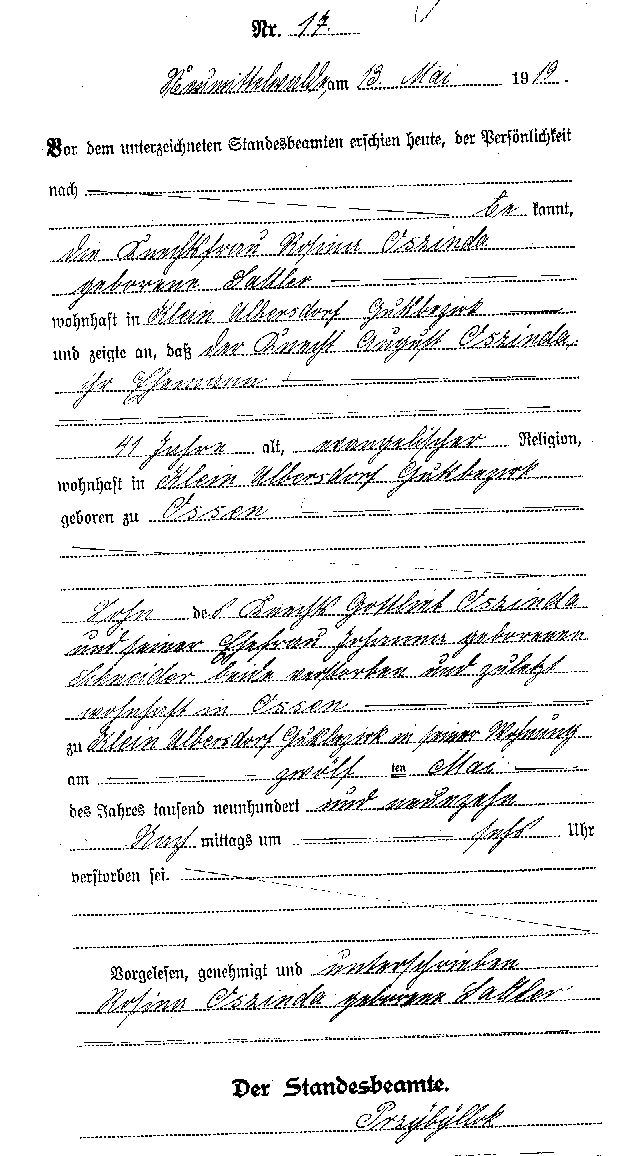 Nr. 17.
Neumittelwalde, am 13. Mai 1919.
Vor dem unterzeichneten Standesbeamten erschien heute, der Persönlichkeit
nach
be kannt,
die Knechtsfrau Rosina Oszinda
geborene Sattler
wohnhaft in Klein Ulbersdorf Gutsbezirk
und zeigte an, daß der Knecht August Oszinda,
ihr Ehemann
41 Jahre alt, evangelischer Religion,
wohnhaft in Klein Ulbersdorf Gutsbezirk
geboren zu Ossen
Sohn des Knechts Gottlieb Oszinda
und seiner Ehefrau Johanna geborenen
Schneider beide verstorben und zuletzt
wohnhaft in Ossen
zu Klein Ulbersdorf Gutsbezirk in seiner Wohnung
am zwölf ten Mai
des Jahres tausend neunhundert und neunzehn
Nach mittags um sechs Uhr
verstorben sei.
Vorgelesen, genehmigt und unterschrieben
Rosina Oszinda geborene Sattler
Der Standesbeamte.
Przybyllok